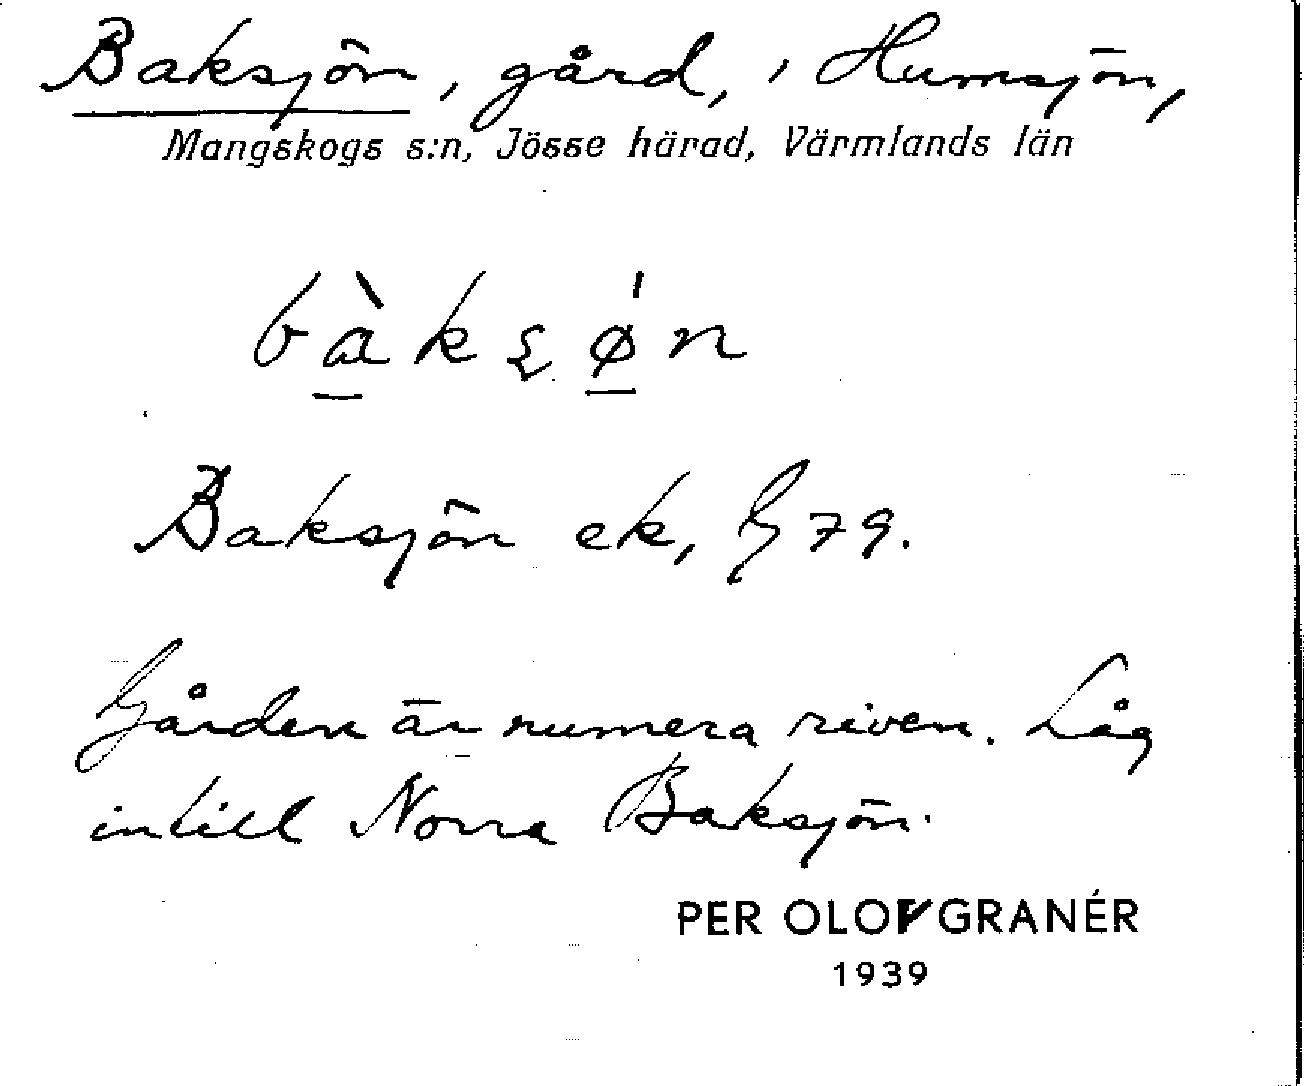 Baksjön, gård, i Humsjön,
Mangskogs s:n, Jösse härad, Värmlands län
Baksjön ek, G 79.
Gården är numera riven. Låg
intill Norra Baksjön.
PER OLOF GRANÉR
1939